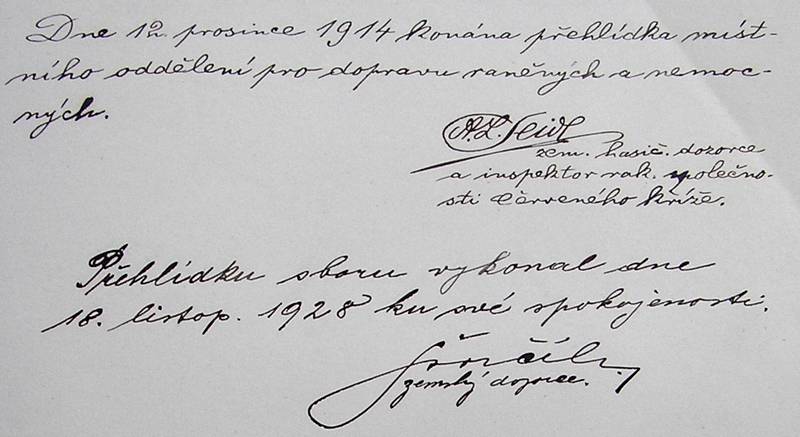 Dne 12. prosince 1914 konána přehlídka míst-
ního oddělení pro dopravu raněných a nemoc-
ných.
A. L. Seidl
zem. hasič. dozorce
a inspektor rak. společno-
sti Červeného kříže.
Přehlídku sboru vykonal dne
18. listop. 1928 ku své spokojenosti.
zemský dozorce.